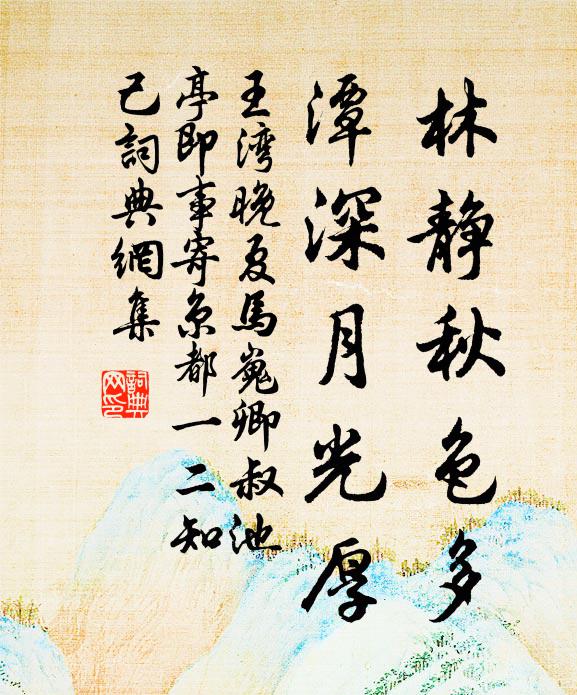 林靜秋色多
潭深月光厚
王湾晚夏馬嵬卿叔池
亭即事寄京都一二知
己詞典網集
詞典
网印